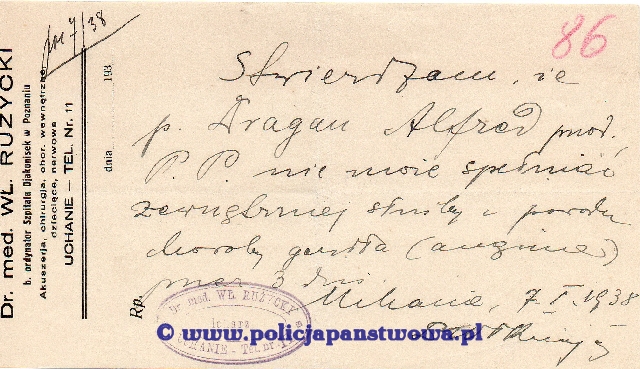 Dr. med. WŁ. RUŻYCKI
b. ordynator Szpitala Djakonisek w Poznaniu
Akuszerja, chirurgja, chor. wewnętrzne,
dziecięce, nerwowe
UCHANIE — TEL. Nr. 11
7/38
86
dnia 193
Stwierdzam, że
p. Dragan Alfred przod.
P. P. nie może spełniać
zewnętrznej służby z powodu
choroby gardła (angina)
przez 3 dni
Rp.
Uchanie, 7.I.1938
Dr med. WŁ. RUŻYCKI
lekarz
UCHANIE - Tel. nr 11
© www.policjapanstwowa.pl